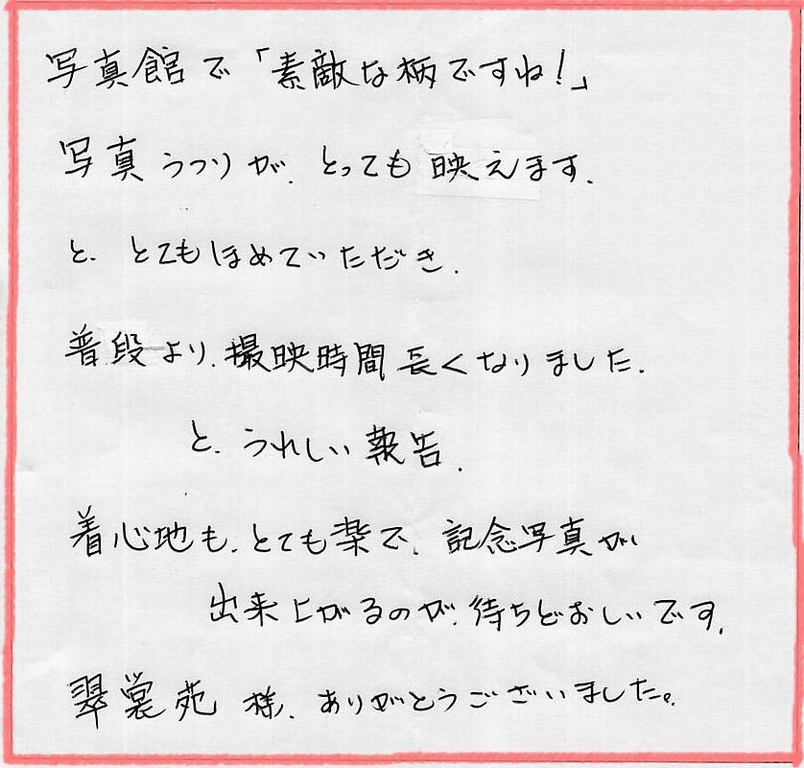 写真館で「素敵な柄ですね!」
写真うつりが、とっても映えます。
と、とてもほめていただき、
普段より、撮映時間長くなりました。
と、うれしい報告。
着心地も、とても楽で、記念写真が
出来上がるのが、待ちどおしいです。
翠裳苑 様、ありがとうございました。